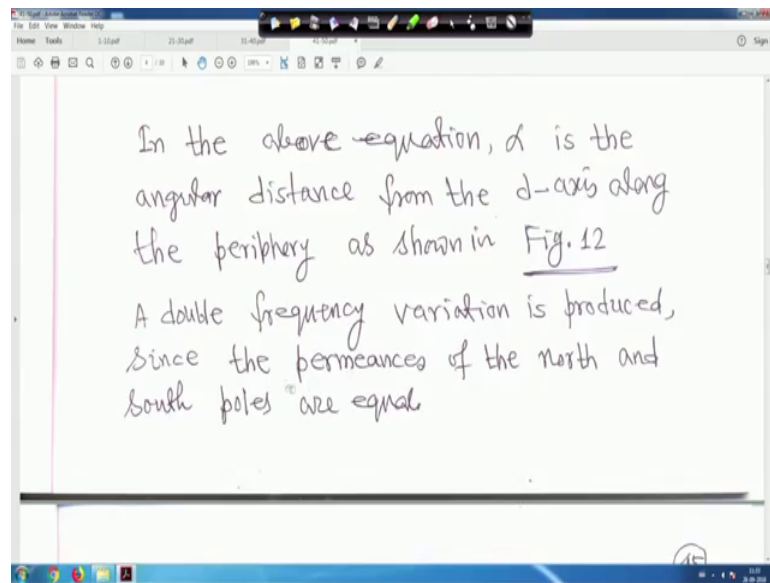 41-50.pdf - Adobe Acrobat Reader DC
File Edit View Window Help
Home Tools 1-10.pdf 21-30.pdf 31-40.pdf 41-50.pdf × Sign
In the above equation, α is the
angular distance from the d-axis along
the periphery as shown in Fig. 12
A double frequency variation is produced,
since the permeances of the north and
south poles are equal
15